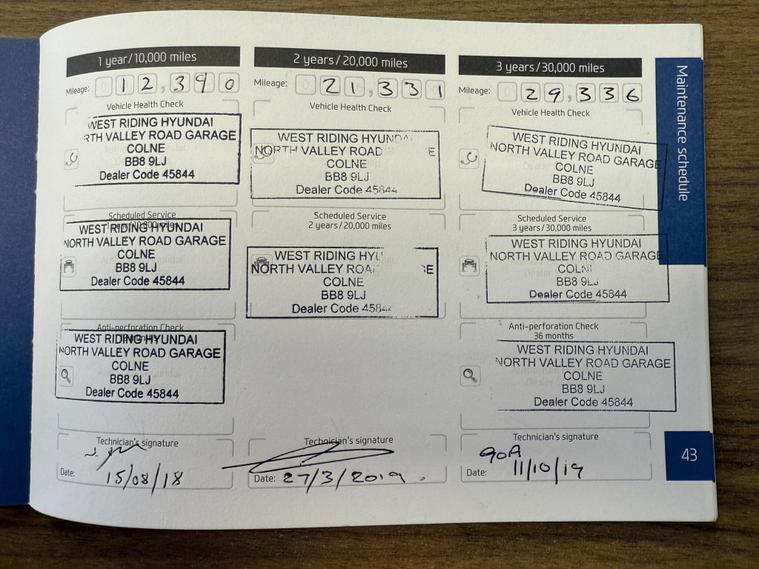 1 year/10,000 miles
Mileage: 0 1 2 , 3 9 0
Vehicle Health Check
WEST RIDING HYUNDAI
RTH VALLEY ROAD GARAGE
COLNE
BB8 9LJ
Dealer Code 45844
Scheduled Service
WEST RIDING HYUNDAI
NORTH VALLEY ROAD GARAGE
COLNE
BB8 9LJ
Dealer Code 45844
Anti-perforation Check
WEST RIDING HYUNDAI
NORTH VALLEY ROAD GARAGE
COLNE
BB8 9LJ
Dealer Code 45844
Technician's signature
Date: 15/08/18
2 years/20,000 miles
Mileage: 0 2 1 , 3 3 1
Vehicle Health Check
WEST RIDING HYUNDA
NORTH VALLEY ROAD E
COLNE
BB8 9LJ
Dealer Code 45844
Scheduled Service
2 years/20,000 miles
WEST RIDING HYU
NORTH VALLEY ROA GE
COLNE
BB8 9LJ
Dealer Code 4584
Technician's signature
Date: 27/3/2019.
3 years/30,000 miles
Mileage: 0 2 9 , 3 3 6
Vehicle Health Check
WEST RIDING HYUNDAI
NORTH VALLEY ROAD GARAGE
COLNE
BB8 9LJ
Dealer Code 45844
Scheduled Service
3 years/30,000 miles
WEST RIDING HYUNDAI
NORTH VALLEY ROAD GARAGE
COLNE
BB8 9LJ
Dealer Code 45844
Anti-perforation Check
36 months
WEST RIDING HYUNDAI
NORTH VALLEY ROAD GARAGE
COLNE
BB8 9LJ
Dealer Code 45844
Technician's signature
Date: 11/10/19
Maintenance schedule
43